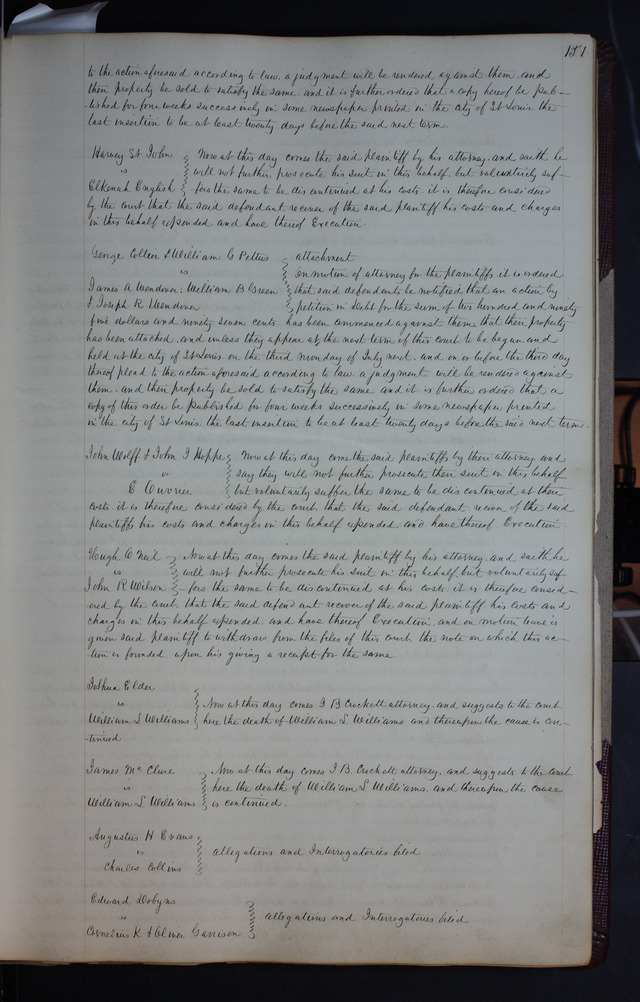 151
to the action aforesaid according to law, a judgment will be rendered against them, and
their property be sold to satisfy the same and it is further ordered that a copy hereof be pub-
lished for four weeks successively in some newspaper printed in the city of St Louis the
last insertion to be at least twenty days before the said next term.
Harvey St John
vs
Elkenah English
Now at this day comes the said plaintiff by his attorney, and saith he
will not further prosecute his suit in this behalf, but voluntarily suf-
fers the same to be discontinued at his costs, it is therefore considered
by the court that the said defendant recover of the said plaintiff his costs and charges
in this behalf expended and have thereof Execution.
George Collier & William G Pettus
vs
James A Wendover, William B Green
& Joseph R Wendover
attachment
on motion of attorney for the plaintiffs it is ordered
that said defendants be notified that an action by
petition in debt for the sum of two hundred and ninety
five dollars and ninety seven cents has been commenced against them, that their property
has been attached, and unless they appear at the next term of this court to be begun and
held at the city of St Louis on the third monday of July next, and on or before the third day
thereof plead to the action aforesaid according to law a judgment will be rendered against
them, and their property be sold to satisfy the same and it is further ordered that a
copy of this order be published for four weeks successively in some newspaper printed
in the city of St Louis the last insertion to be at least twenty days before the said next term
John Wolff & John I Hoppe
vs
C
Now at this day come the said plaintiffs by their attorney and
say they will not further prosecute their suit in this behalf
but voluntarily suffer the same to be discontinued at their
costs it is therefore considered by the court that the said defendant recover of the said
plaintiffs his costs and charges in this behalf expended and have thereof Execution
Hugh O Neil
vs
John R Wilson
Now at this day comes the said plaintiff by his attorney, and saith he
will not further prosecute his suit in this behalf, but voluntarily suf
fers the same to be discontinued at his costs, it is therefore consid-
ered by the court, that the said defendant recover of the said plaintiff his costs and
charges in this behalf expended and have thereof Execution, and on motion leave is
given said plaintiff to withdraw from the files of this court, the note on which this ac-
tion is founded upon his giving a receipt for the same
Joshua Elder
vs
William S Williams
Now at this day comes J B Crockett attorney, and suggests to the court
here the death of William S Williams and thereupon the cause is con-
tinued
James Mc Clure
vs
William S Williams
Now at this day comes J. B. Crockett attorney, and suggests to the court
here the death of William S Williams, and thereupon the cause
is continued.
Augustus H Evans
vs
Charles Collins
allegations and Interrogatories filed
Edward Dobyns
vs
Cornelius K & Oliver Garrison
allegations and Interrogatories filed